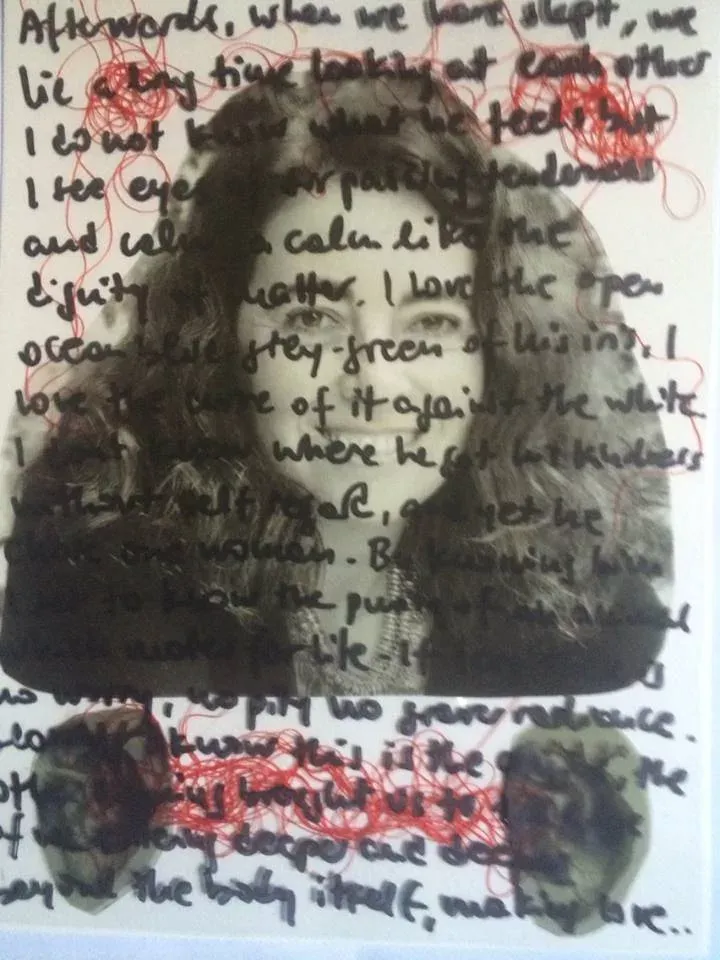 Afterwards, when we have slept, we
lie a long time looking at each other
I do not know what he feels but
I see eyes surpassing tenderness
and calm a calm like the
dignity of matter. I love the open
ocean blue-grey-green of his iris, I
love the curve of it against the white
I don't know where he got his kindness
without self regard,
and yet he
chose one woman. By knowing him
I get to know the purity of an animal
which mates for life - If
no worry, no pity no graver radiance.
know this is the the
brought us to
deeper and deeper
beyond the body itself, making love..